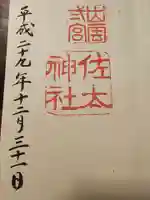 佐太
神社
平成二十九年十二月三十一日